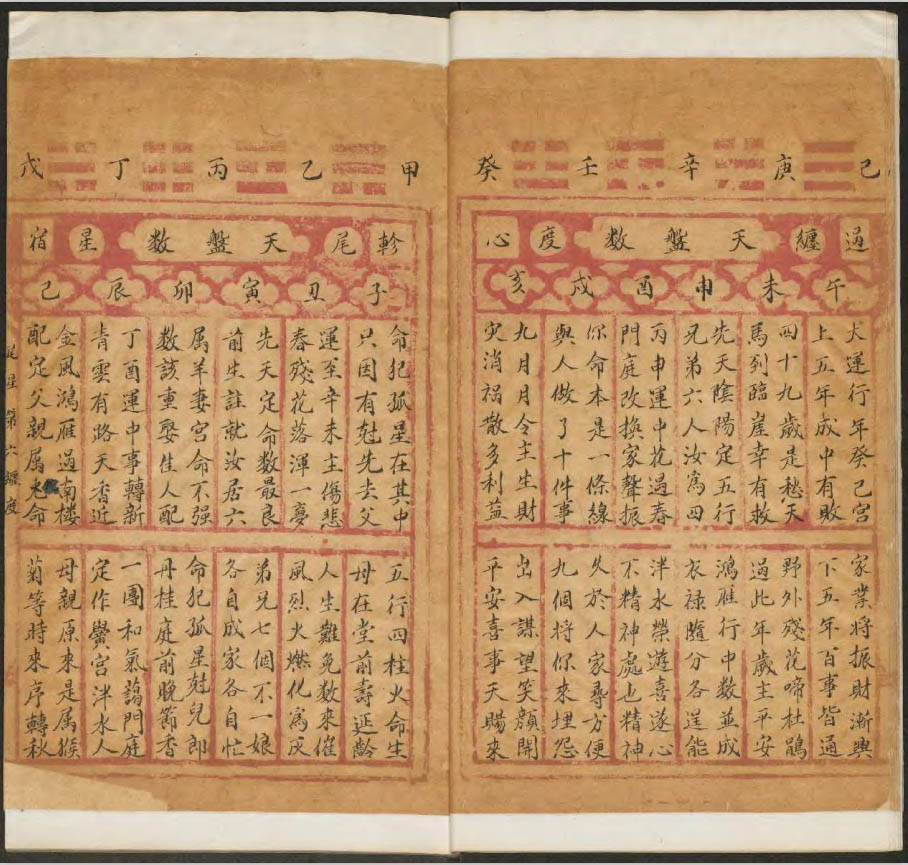 己 庚 辛 壬 癸
過 纏 天盤數 度 心
午 未 申 酉 戌 亥
大運行年癸己宮
上五年成中有敗
四十九歲是愁天
馬到臨崖幸有救
先天陰陽定五行
兄弟六人汝寫四
丙申運中花過春
門庭改換家聲振
你命本是一條線
與人做了十件事
九月月令主生財
灾消禍散多利益
家業將振財漸興
下五年百事皆通
野外殘花啼杜鵑
過此年歲主平安
鴻雁行中数並成
衣禄隨分各逞能
泮水榮遊喜遂心
不精神處也精神
久於人家尋方便
九個將你來埋怨
出入謀望笑顏開
平安喜事天賜來
甲 乙 丙 丁 戊
軫 尾 天盤數 星 宿
子 丑 寅 卯 辰 己
命犯孤星在其中
只因有尅先去父
運至辛未主傷悲
春殘花落渾一夢
先天定命数最良
前生註就汝居六
属羊妻宮命不强
数該重娶佳人配
丁酉運中事轉新
青雲有路天香近
金風鴻雁過南楼
配定父親属命
五行四柱火命生
母在堂前壽延齡
人生難免数來催
風烈火燃化寫灰
弟兄七個不一娘
各自成家各自忙
命犯孤星尅兒郎
丹桂庭前晚節香
一團和氣藹門庭
定作黌宮泮水人
母親原來是属猴
菊等時來序轉秋
星第六纏度